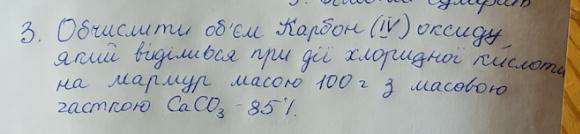 3. Обчислити об'єм Карбон (IV) оксиду,
який віділився при дії хлоридної кислоти
на мармур масою 100 г з масовою
часткою CaCO₃ - 85%.